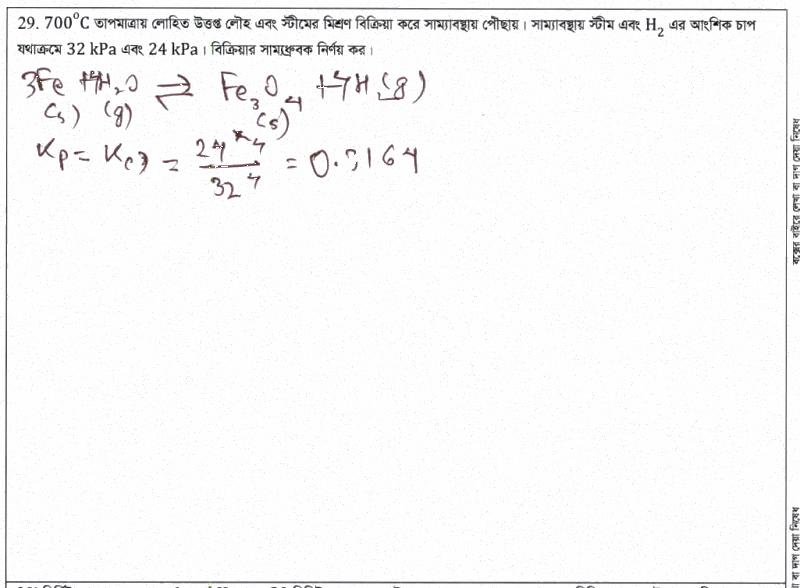 29. 700⁰C তাপমাত্রায় লোহিত উত্তপ্ত লৌহ এবং স্টীমের মিশ্রণ বিক্রিয়া করে সাম্যাবস্থায় পৌছায়। সাম্যাবস্থায় স্টীম এবং H₂ এর আংশিক চাপ
যথাক্রমে 32 kPa এবং 24 kPa। বিক্রিয়ার সাম্যধ্রুবক নির্ণয় কর।
3Fe + 4H₂O ⇌ Fe₃O₄ + 4H₂(g)
(s) (g) (s)
Kp = Kc = 24⁴ / 32⁴ = 0.3164
বক্সের বাইরে লেখা বা দাগ দেয়া নিষেধ
বা দাগ দেয়া নিষেধ